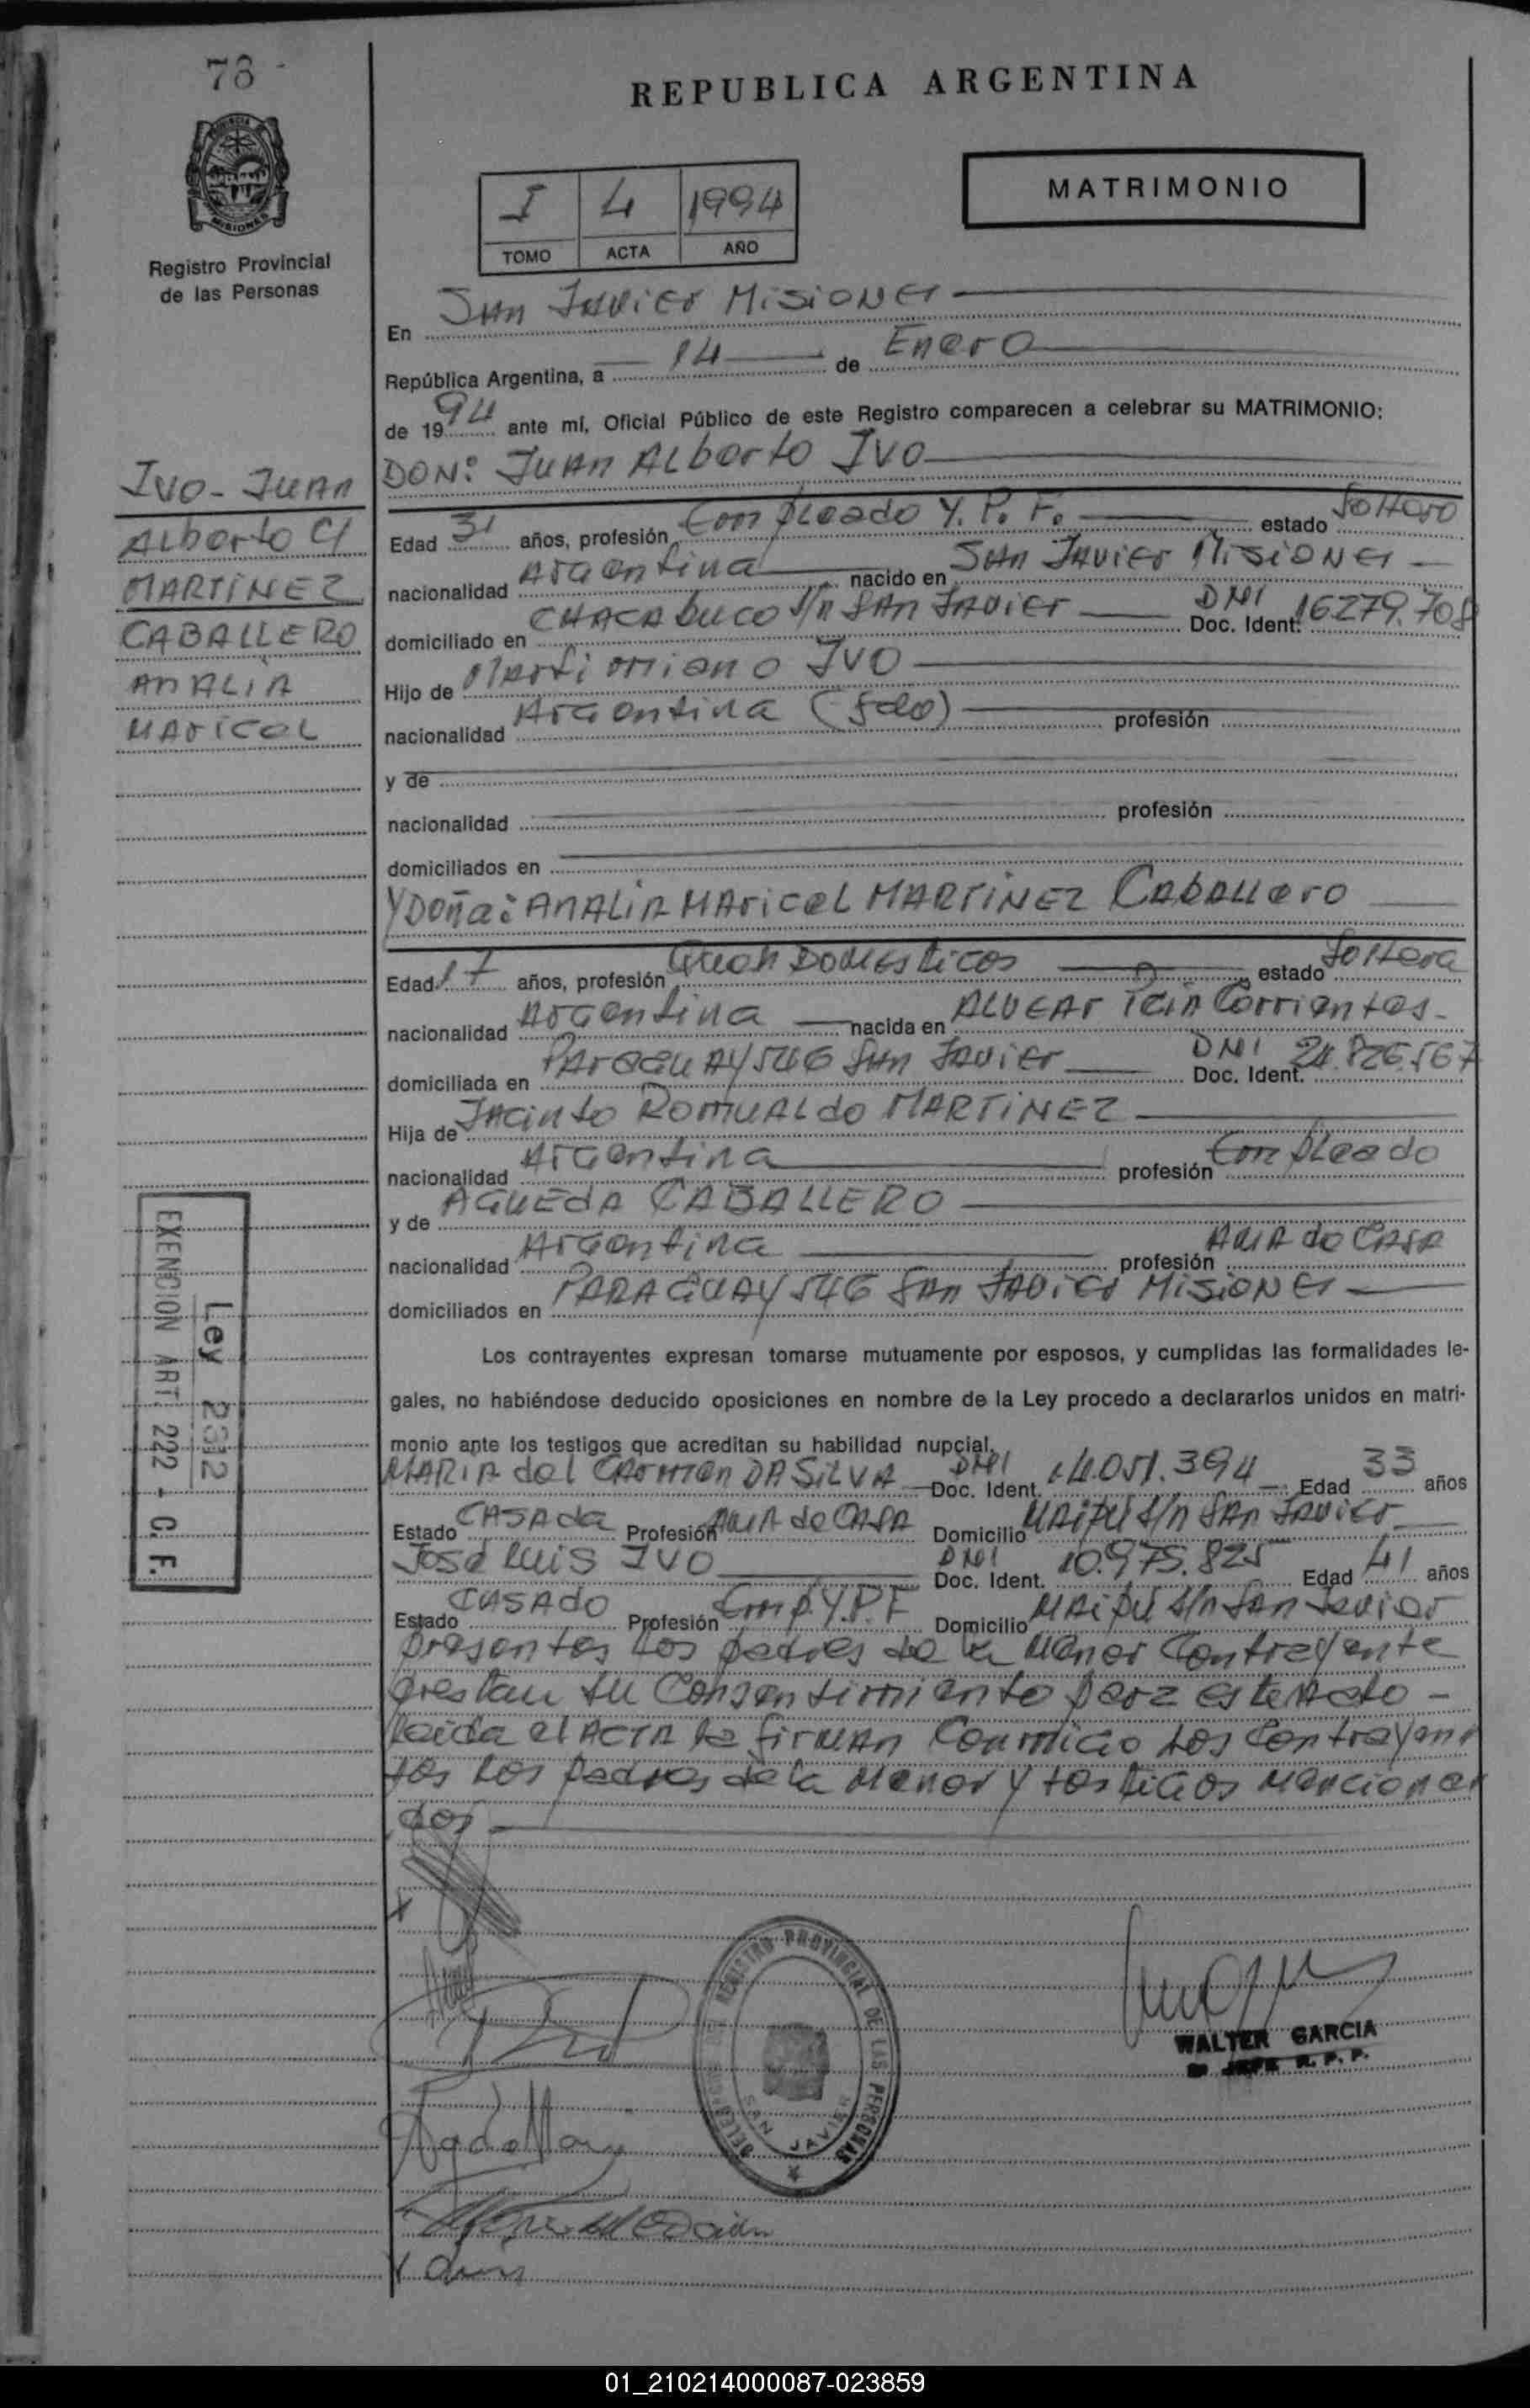 78 -
REPUBLICA ARGENTINA
MATRIMONIO
I 4 1994
TOMO ACTA AÑO
MISIONES
Registro Provincial
de las Personas
En San Javier Misiones
República Argentina, a 14 de Enero
de 1994 ante mí, Oficial Público de este Registro comparecen a celebrar su MATRIMONIO:
DON: Juan Alberto Ivo
Ivo - Juan
Alberto C/
MARTINEZ
CABALLERO
ANALIA
MARICEL
Edad 31 años, profesión Empleado Y.P.F. estado Soltero
nacionalidad Argentina nacido en San Javier Misiones
domiciliado en CHACABUCO S/n SAN JAVIER DNI Doc. Ident. 16279.708
Hijo de Ivo
nacionalidad Argentina profesión
y de
nacionalidad profesión
domiciliados en
Y Doña: ANALIA MARICEL MARTINEZ CABALLERO
Edad 17 años, profesión Queh Domesticos estado Soltera
nacionalidad Argentina nacida en ALVEAR Corrientes
domiciliada en PARAGUAY 546 San Javier DNI Doc. Ident. 24.826.567
Hija de Jacinto Romualdo MARTINEZ
nacionalidad Argentina profesión Empleado
y de AGUEDA CABALLERO
nacionalidad Argentina profesión AMA de CASA
domiciliados en PARAGUAY 546 San Javier Misiones
Los contrayentes expresan tomarse mutuamente por esposos, y cumplidas las formalidades le-
gales, no habiéndose deducido oposiciones en nombre de la Ley procedo a declararlos unidos en matri-
monio ante los testigos que acreditan su habilidad nupcial.
MARIA del CARMEN DA SILVA DNI Doc. Ident. 14.051.394 Edad 33 años
Estado CASADA Profesión AMA de CASA Domicilio MAIPU S/n SAN JAVIER
José Luis IVO DNI Doc. Ident. 10.975.825 Edad 41 años
Estado CASADO Profesión Emp. Y.P.F Domicilio MAIPU S/n San Javier
presentes los padres de la menor contrayente
prestan su Consentimiento para este Acto -
leida el ACTA la firman conmigo los contrayen
tes los padres de la menor y testigos menciona
dos
EXENCION ART. 222 - C. F.
Ley 2312
REGISTRO PROVINCIAL DE LAS PERSONAS
SAN JAVIER
WALTER GARCIA
JEFE R. P. P.
01_210214000087-023859